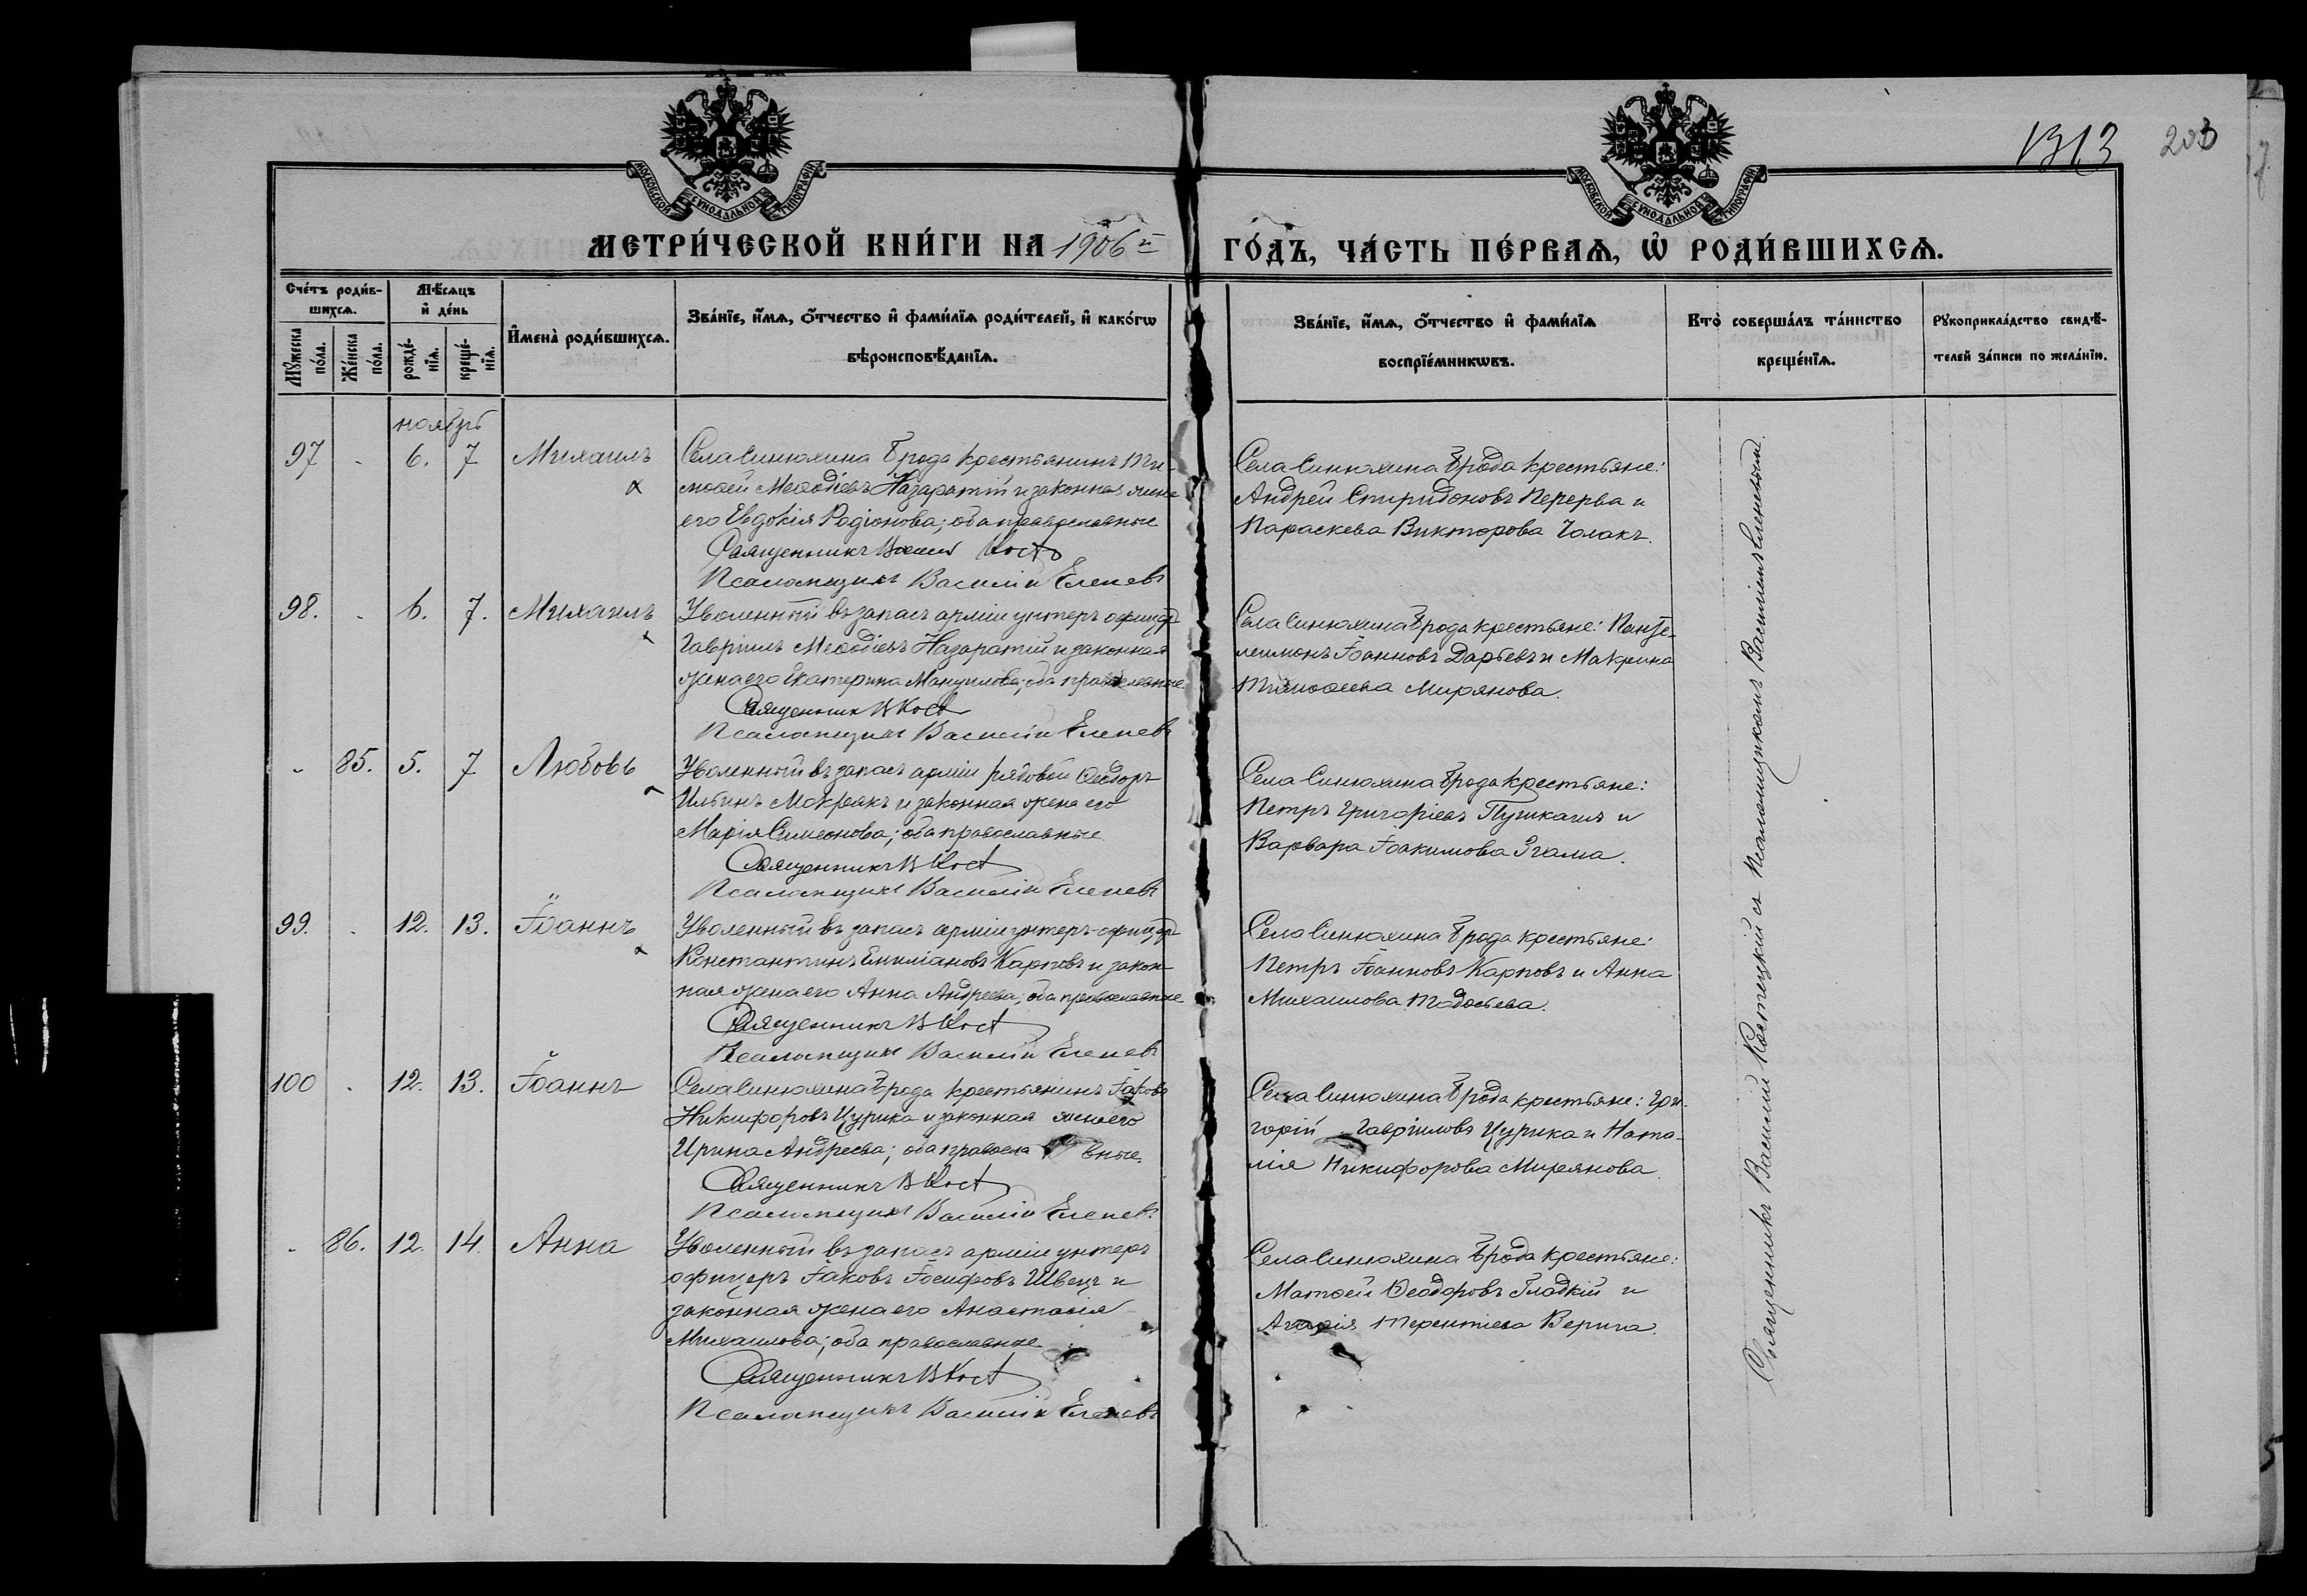 1313 203
МОСКОВСКОЙ СѴНОДАЛЬНОЙ ТИПОГРАФІИ
МОСКОВСКОЙ СѴНОДАЛЬНОЙ ТИПОГРАФІИ
МЕТРИ́ЧЕСКОЙ КНИ́ГИ НА 1906й ГО́ДЪ, ЧА́СТЬ ПЕ́РВАѦ, Ѡ҆ РОДИ́ВШИХСѦ.
Сче́тъ роди́в-
шихсѧ.
Мꙋ́жеска по́ла.
Же́нска по́ла.
Мѣ́сѧцъ
и҆ де́нь
рожде́-
нїѧ.
креще́-
нїѧ.
И҆мена̀ роди́вшихсѧ.
Зва́нїе, и҆́мѧ, о҆́тчество и҆ фами́лїѧ роди́телей, и҆ како́гѡ
вѣроисповѣ́данїѧ.
Зва́нїе, и҆́мѧ, о҆́тчество и҆ фами́лїѧ
воспрїе́мникѡвъ.
Кто̀ соверша́лъ та́инство
креще́нїѧ.
Рꙋкоприкла́дство свидѣ́-
телей за́писи по жела́нїю.
ноябрь
97 - 6. 7 Михаилъ
Села Синюхина Брода крестьянинъ Ти-
моѳей Меѳодіевъ Назаратій и законная жена
его Евдокія Родіонова; оба православные
Священникъ Кост
Псаломщикъ Василій Еленевъ
Села Синюхина Брода крестьяне:
Андрей Спиридоновъ Перерва и
Параскева Викторова Чолакъ.
98. - 6. 7. Михаилъ
Уволенный въ запасъ арміи унтеръ офицеръ
Гавріилъ Меѳодіевъ Назаратій и законная
жена его Екатерина Мануилова; оба православные.
Священникъ В Кост
Псаломщикъ Василій Еленевъ
Села Синюхина Брода крестьяне: Панте-
леимонъ Іоанновъ Дарьевъ и Макрина
Тимоѳеева Мирянова.
- 85. 5. 7 Любовь
Уволенный въ запасъ арміи рядовой Ѳеодоръ
Ильинъ Мокрякъ и законная жена его
Марія Симеонова; оба православные
Священникъ В Кост
Псаломщикъ Василій Еленевъ
Села Синюхина Брода крестьяне:
Петръ Григоріевъ Пушкашъ и
Варвара Іоакимова Згама.
99. - 12. 13. Іоаннъ
Уволенный въ запасъ арміи унтеръ-офицеръ
Константинъ Емиліановъ Карповъ и закон-
ная жена его Анна Андреева; оба православные
Священникъ В Кост
Псаломщикъ Василій Еленевъ
Села Синюхина Брода крестьяне:
Петръ Іоанновъ Карповъ и Анна
Михаилова Тодосьева.
100 - 12. 13. Іоаннъ
Села Синюхина Брода крестьянинъ Іаковъ
Никифоровъ Цурика и законная жена его
Ирина Андреева; оба православные.
Священникъ В Кост
Псаломщикъ Василій Еленевъ
Села Синюхина Брода крестьяне: Гри-
горій Гавріиловъ Цурика и Ната-
лія Никифорова Мирянова.
- 86. 12. 14. Анна
Уволенный въ запасъ арміи унтеръ
офицеръ Іаковъ Іосифовъ Швецъ и
законная жена его Анастасія
Михаилова; оба православные
Священникъ В Кост
Псаломщикъ Василій Еленевъ
Села Синюхина Брода крестьяне:
Матѳей Ѳеодоровъ Гладкій и
Агафія Терентіева Верига.
Священникъ Василій Костецкій съ Псаломщикомъ Василіемъ Еленевымъ.